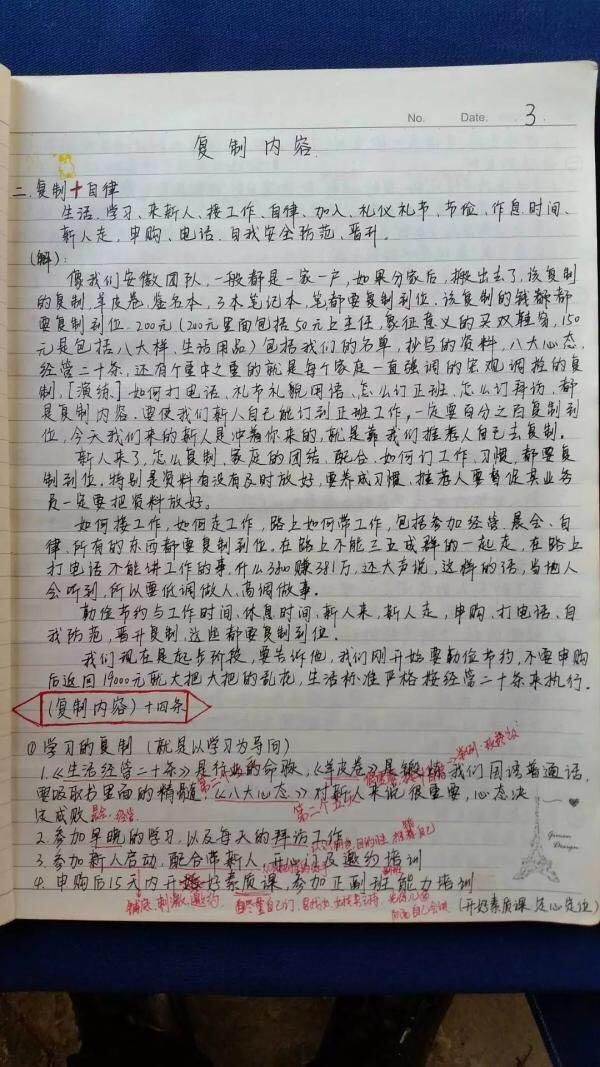 No. Date. 3
复制内容
二.复制十自律
生活、学习、来新人、接工作、自律、加入、礼仪礼节、节俭、作息时间、
新人走,申购、电话、自我安全防范、晋升.
(解):
像我们安徽团队,一般都是一家一户,如果分家后,搬出去了,该复制
的复制,羊皮卷,签名本,3本笔记本,笔都要复制到位.该复制的钱都都
要复制到位.200元(200元里面包括50元上主任,象征意义的买双鞋穿,150
元是包括八大样,生活用品)包括我们的名单,抄写的资料,八大心态,
经营二十条,还有个重中之重的就是每个家庭一直强调的宏观调控的复
制,[演练]如何打电话、礼节礼貌用语、怎么订正班,怎么订拜访,都
是复制内容.要使我们新人自己能订到正班工作,一定要百分之百复制到
位,今天我们来的新人是冲着你来的,就是靠我们推荐人自己去复制.
新人来了,怎么复制,家庭的团结、配合、如何订工作、习惯,都要复
制到位.特别是资料有没有及时放好,要养成习惯.推荐人要督促其业务
员一定要把资料放好.
如何接工作,如何走工作,路上如何带工作,包括参加经营、晨会、自
律、所有的东西都要复制到位.在路上不能三五成群的一起走,在路上
打电话不能讲工作的事,什么3800赚381万,还大声说,这样的话,当地人
会听到,所以要低调做人、高调做事.
勤俭节约与工作时间、休息时间、新人来,新人走,申购、打电话、自
我防范,晋升复制,这些都要复制到位.
我们现在是起步阶段,要告诉他,我们刚开始要勤俭节约,不要申购
后返回19000元就大把大把的乱花,生活标准严格按经营二十条来执行.
(复制内容)十四条
①学习的复制(就是以学习为导向)
1.《生活经营二十条》是行业的命脉,《羊皮卷》是锻炼我们国语普通话,
要吸取书里面的精髓.《八大心态》对新人来说很重要,心态决
定成败
2.参加早晚的学习,以及每天的拜访工作
3.参加新人启动,配合带新人,开心门及邀约培训
4.申购后15天内开好素质课,参加正副班能力培训
铺底、刺激、邀约.
(开好素质课 定心定位)